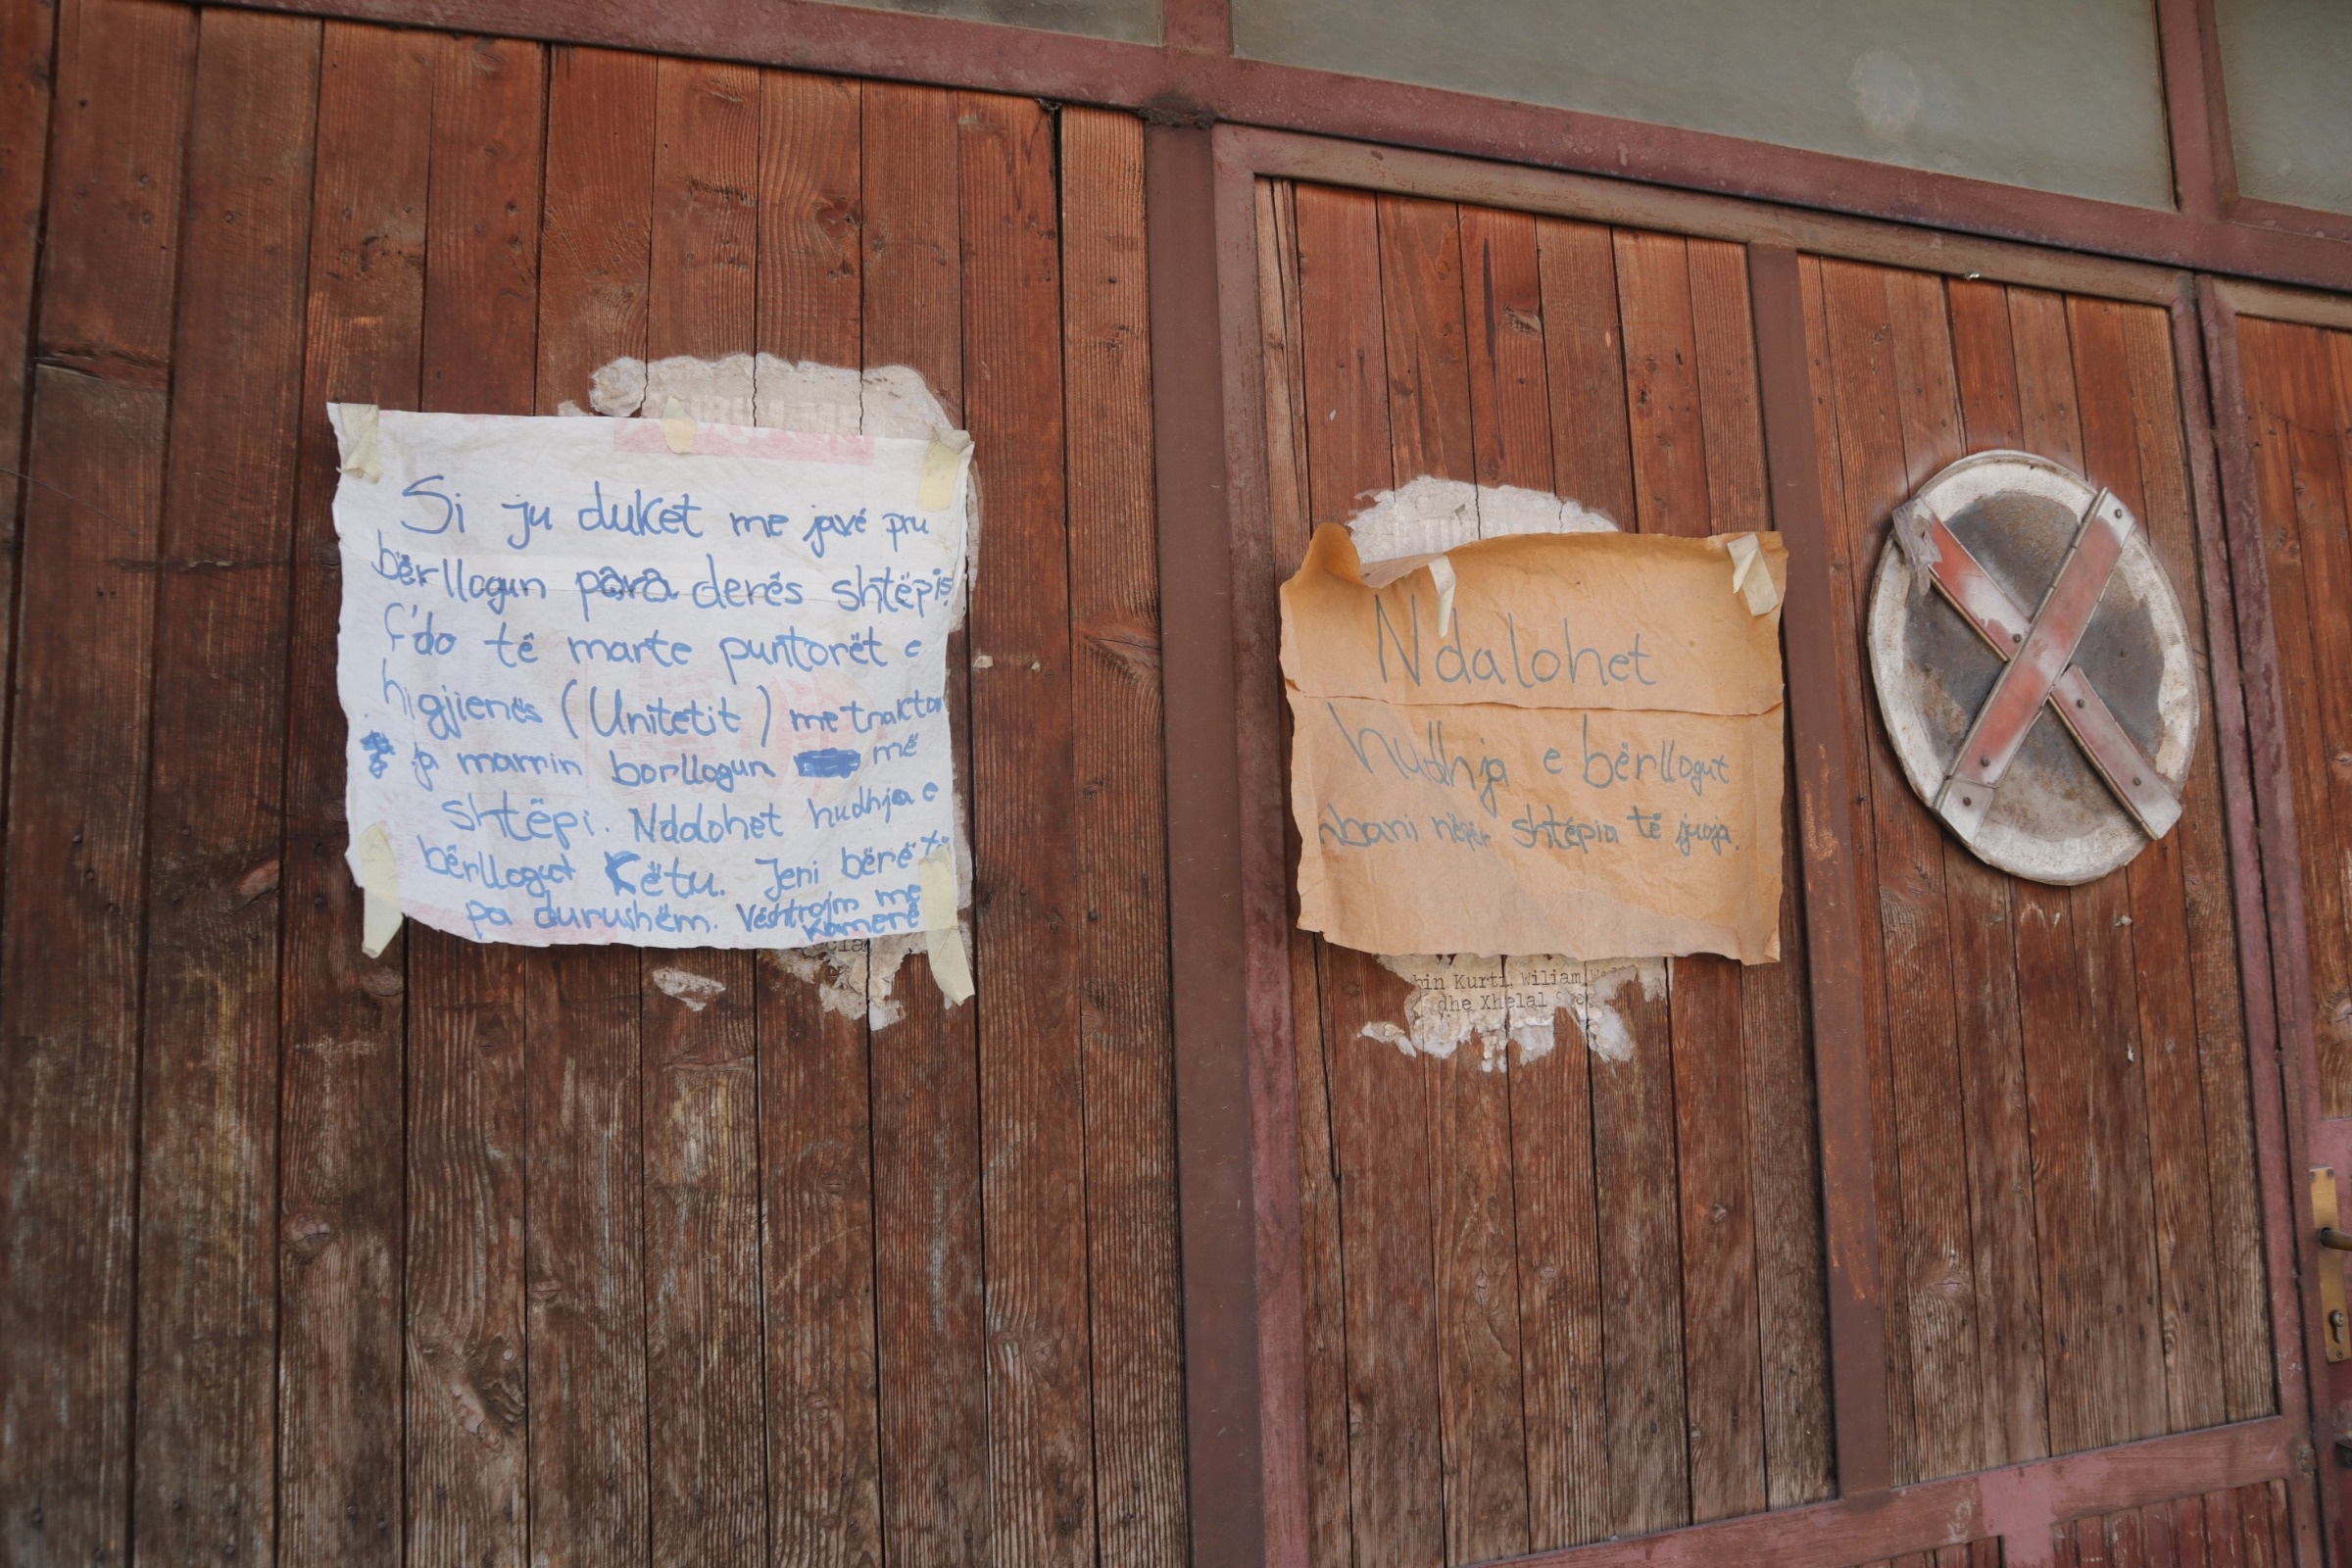 Si ju duket me javë pru
bërllogun para derës shtëpis
Ç'do të marte puntorët e
higjienës (Unitetit) me traktor
ja marrin borllogun më
shtëpi. Ndalohet hudhja e
bërllogut Këtu. Jeni bërë të
pa durushëm. Vështrojm me
Kamerë
Ndalohet
hudhja e bërllogut
mbani nëpër shtëpia të juaja.
bin Kurti, Wiliam
dhe Xhelal